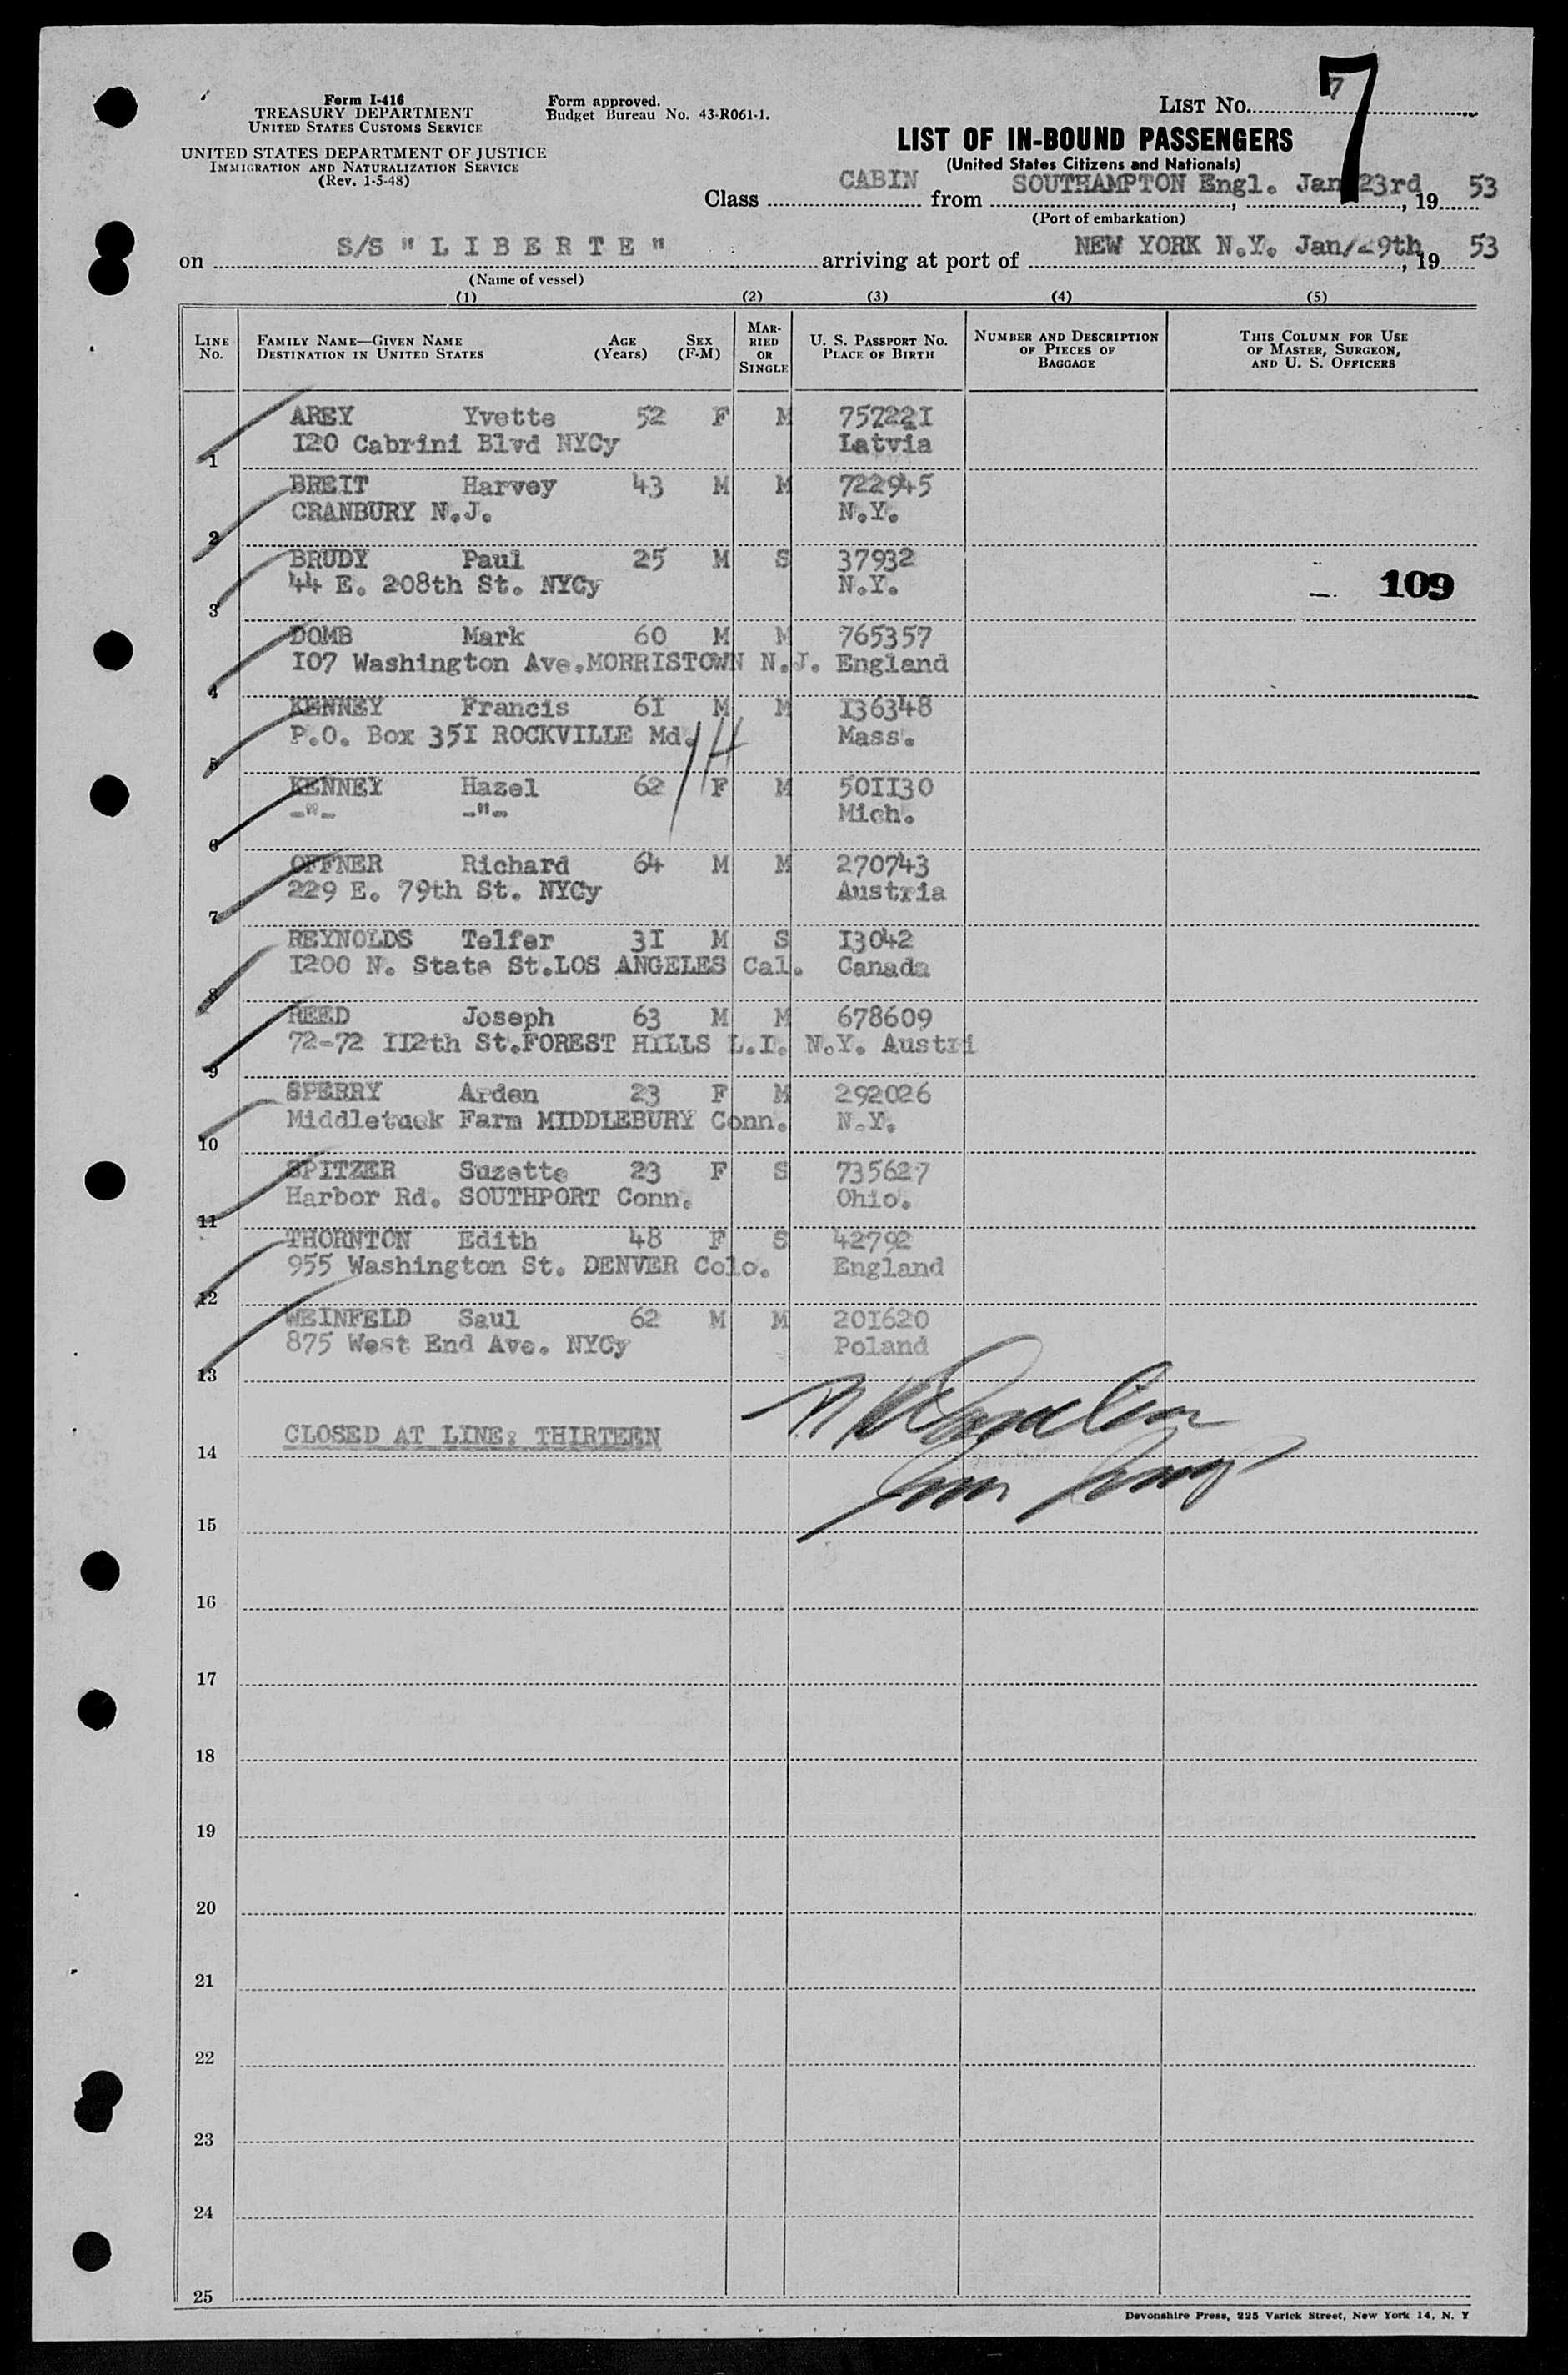 Form I-416
TREASURY DEPARTMENT
UNITED STATES CUSTOMS SERVICE
UNITED STATES DEPARTMENT OF JUSTICE
IMMIGRATION AND NATURALIZATION SERVICE
(Rev. 1-5-48)
Form approved.
Budget Bureau No. 43-R061-1.
LIST No. 7
7
LIST OF IN-BOUND PASSENGERS
(United States Citizens and Nationals)
Class CABIN from SOUTHAMPTON Engl. Jan 23rd, 19 53
(Port of embarkation)
on S/S " L I B E R T E " arriving at port of NEW YORK N.Y. Jan/29th, 19 53
(Name of vessel)
(1) (2) (3) (4) (5)
LINE No. FAMILY NAME—GIVEN NAME DESTINATION IN UNITED STATES AGE (Years) SEX (F-M) MARRIED OR SINGLE U. S. PASSPORT NO. PLACE OF BIRTH NUMBER AND DESCRIPTION OF PIECES OF BAGGAGE THIS COLUMN FOR USE OF MASTER, SURGEON, AND U. S. OFFICERS
AREY Yvette 52 F M 757221
1 I20 Cabrini Blvd NYCy Latvia
BREIT Harvey 43 M M 722945
2 CRANBURY N.J. N.Y.
BRUDY Paul 25 M S 37932
3 44 E. 208th St. NYCy N.Y. 109
DOMB Mark 60 M M 765357
4 I07 Washington Ave.MORRISTOWN N.J. England
KENNEY Francis 6I M M I36348
5 P.O. Box 35I ROCKVILLE Md. Mass.
KENNEY Hazel 62 F M 50II30
6 -"- -"- Mich.
OFFNER Richard 64 M M 270743
7 229 E. 79th St. NYCy Austria
REYNOLDS Telfer 3I M S I3042
8 I200 N. State St.LOS ANGELES Cal. Canada
REED Joseph 63 M M 678609
9 72-72 II2th St.FOREST HILLS L.I. N.Y. Austri
SPERRY Arden 23 F M 292026
10 Middletuck Farm MIDDLEBURY Conn. N.Y.
SPITZER Suzette 23 F S 735627
11 Harbor Rd. SOUTHPORT Conn. Ohio.
THORNTON Edith 48 F S 42792
12 955 Washington St. DENVER Colo. England
WEINFELD Saul 62 M M 20I620
13 875 West End Ave. NYCy Poland
14 CLOSED AT LINE: THIRTEEN
15
16
17
18
19
20
21
22
23
24
25
Devonshire Press, 225 Varick Street, New York 14, N. Y